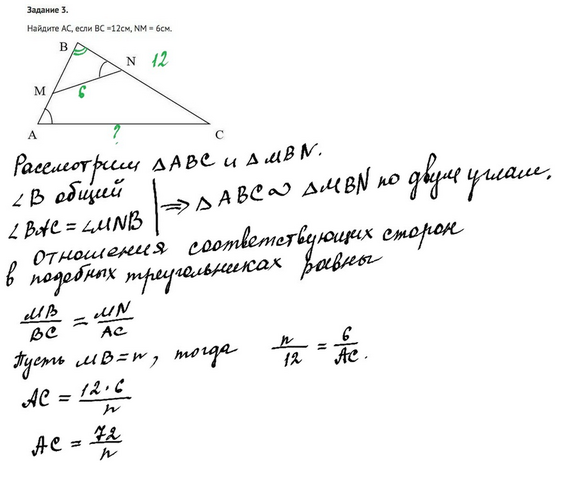 Задание 3.
Найдите АС, если ВС =12см, NM = 6см.
B
N 12
M 6
A ? C
Рассмотрим △ABC и △MBN.
∠B общий
∠BAC = ∠MNB ⇒ △ABC ∾ △MBN по двум углам.
Отношения соответствующих сторон
в подобных треугольниках равны
MB/BC = MN/AC
Пусть MB = n, тогда n/12 = 6/AC.
AC = 12·6/n
AC = 72/n